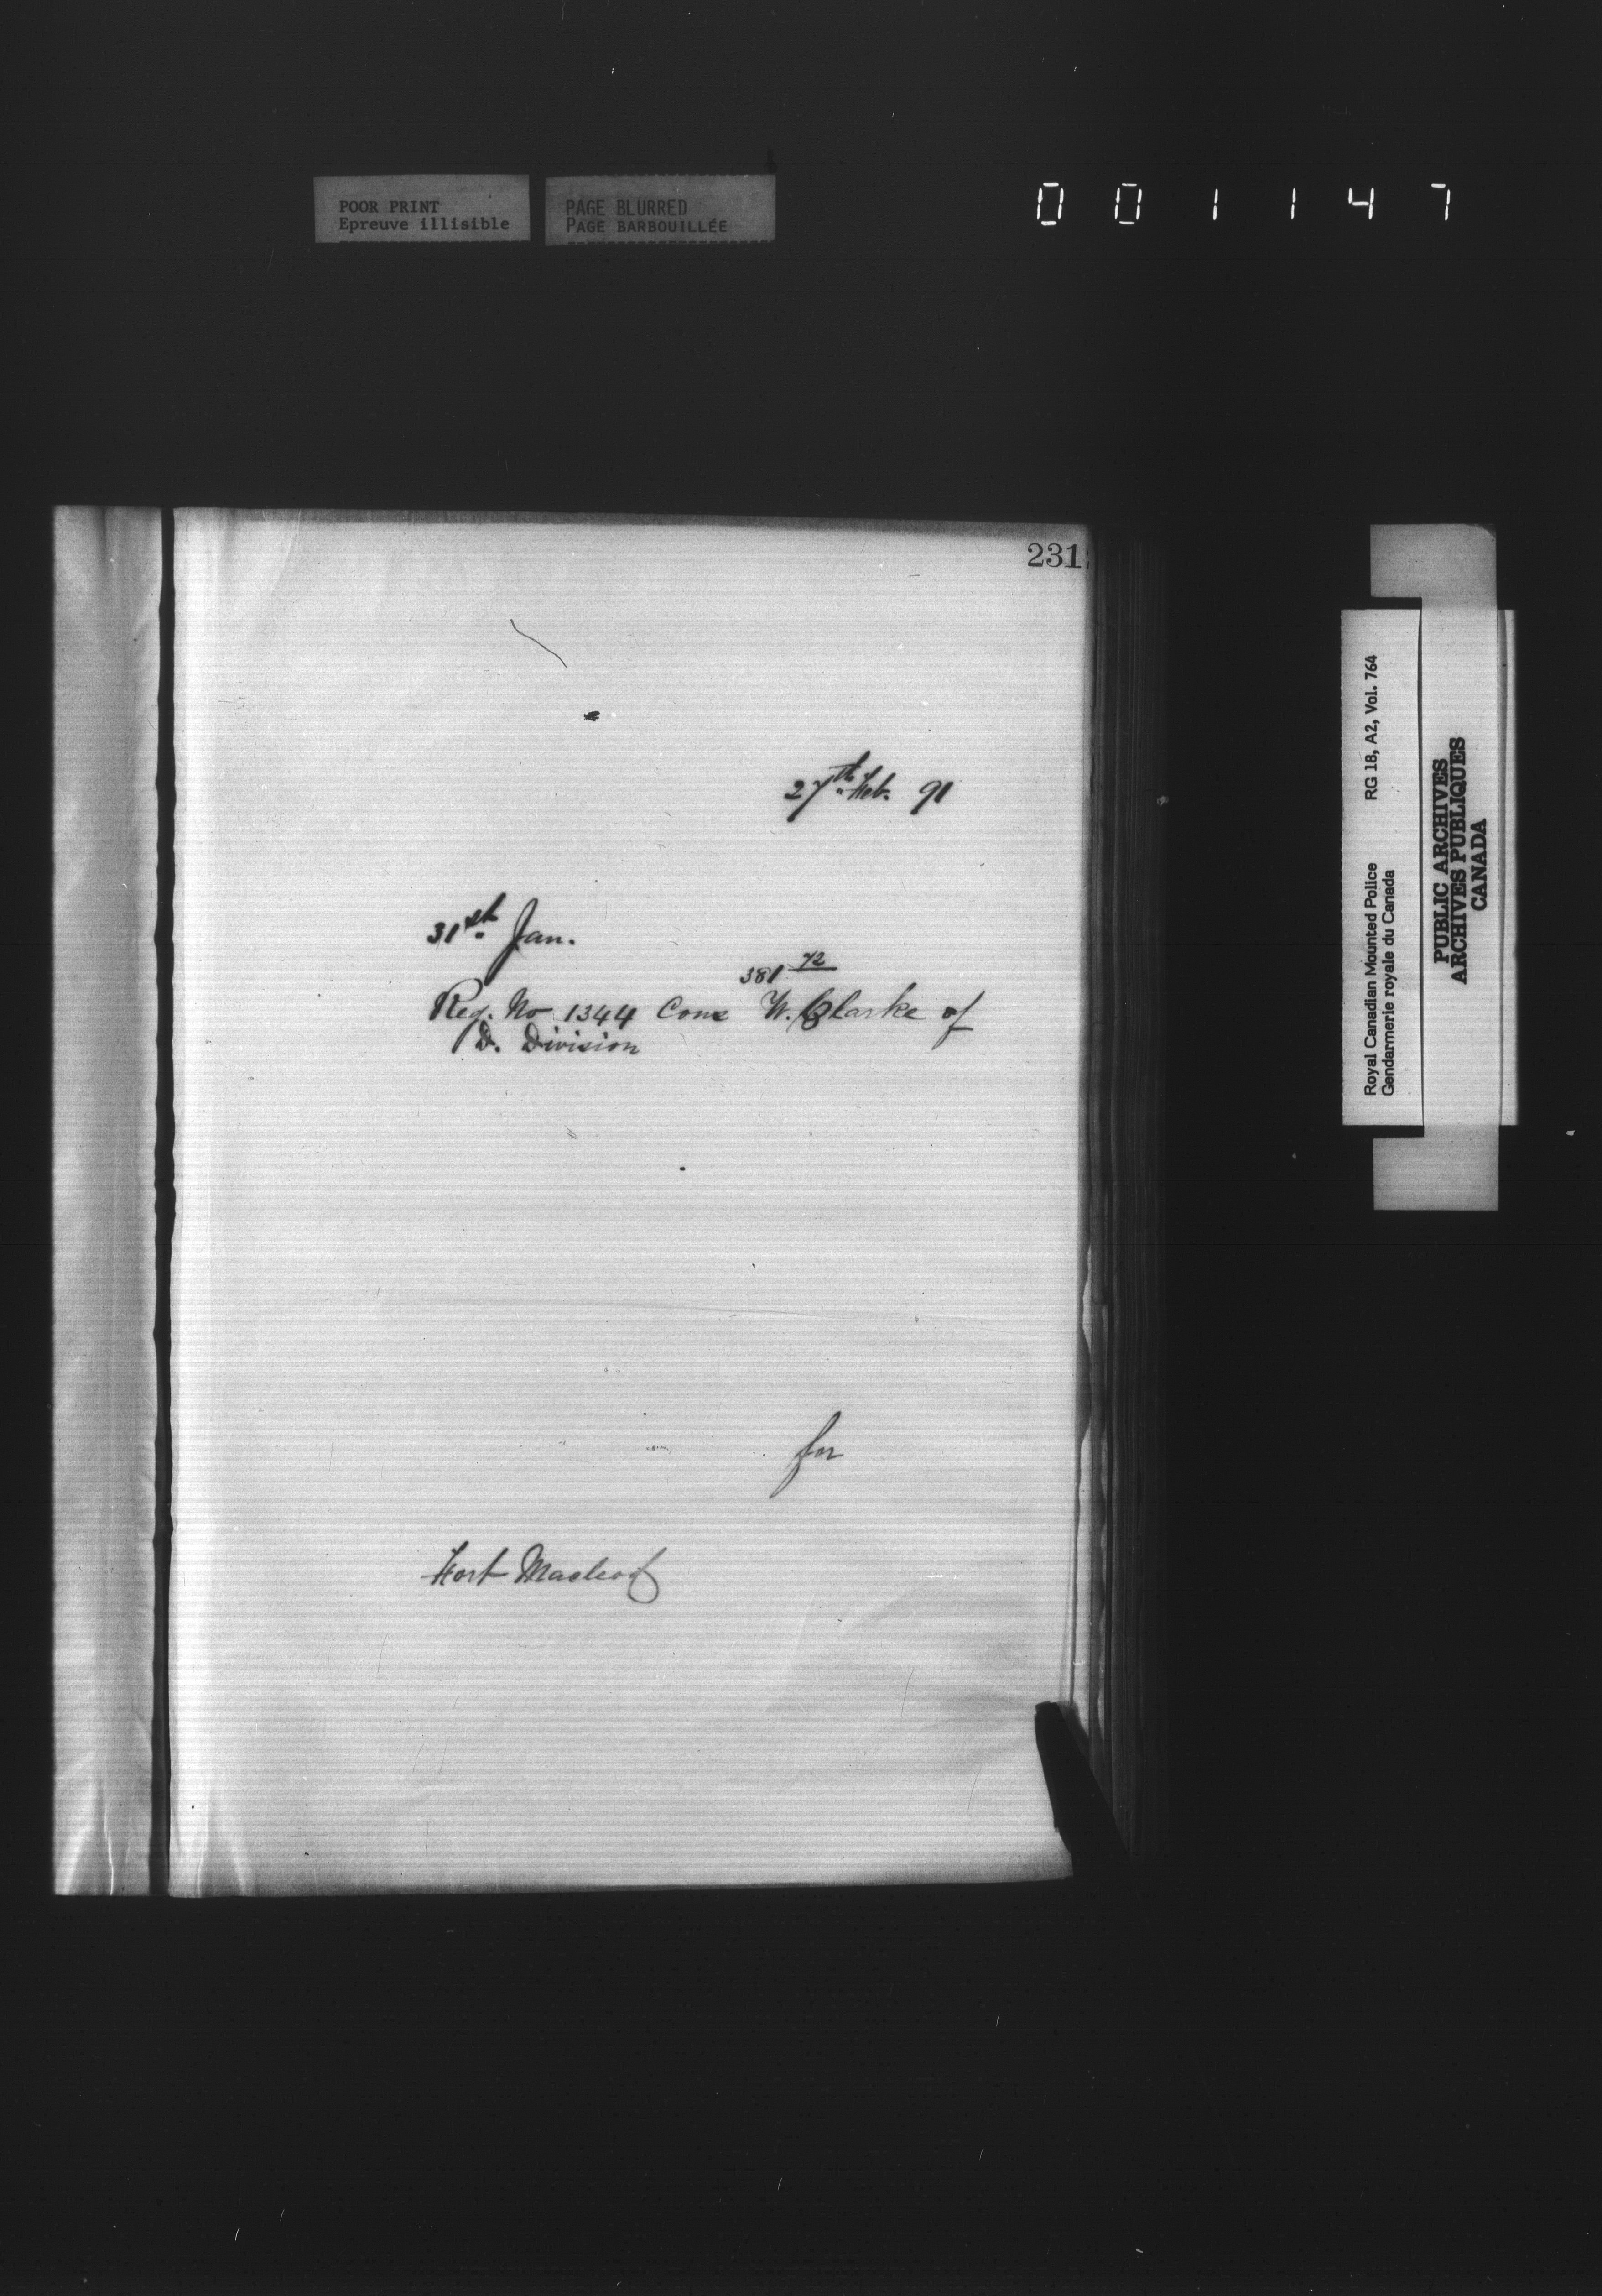 POOR PRINT
Epreuve illisible
PAGE BLURRED
PAGE BARBOUILLÉE
001147
231
27th Feb. 91
31st Jan.
381 72
Reg. No 1344 Cons W. Clarke of
D. Division
for
Fort Macleod
Royal Canadian Mounted Police RG 18, A2, Vol. 764
Gendarmerie royale du Canada
PUBLIC ARCHIVES
ARCHIVES PUBLIQUES
CANADA